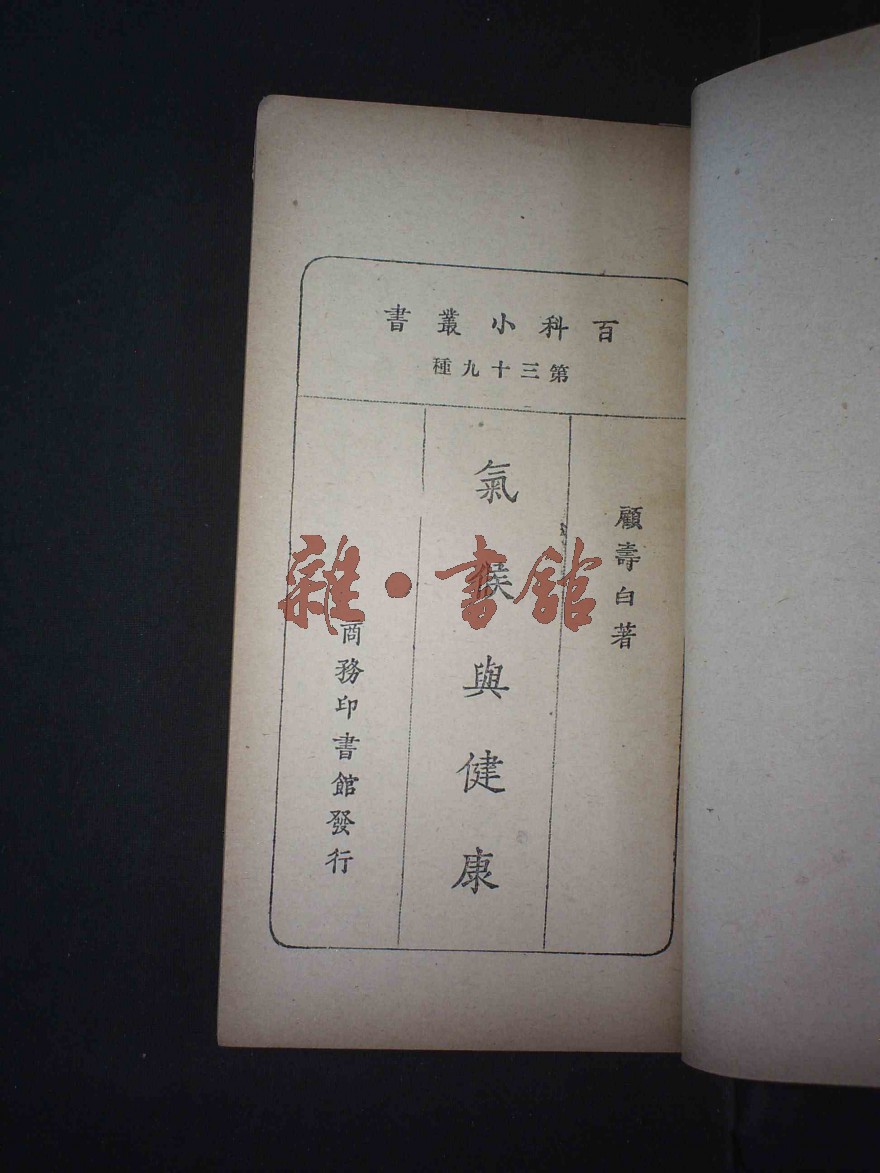 百科小叢書
第三十九種
顧壽白著
氣候與健康
商務印書館發行
雜·書館